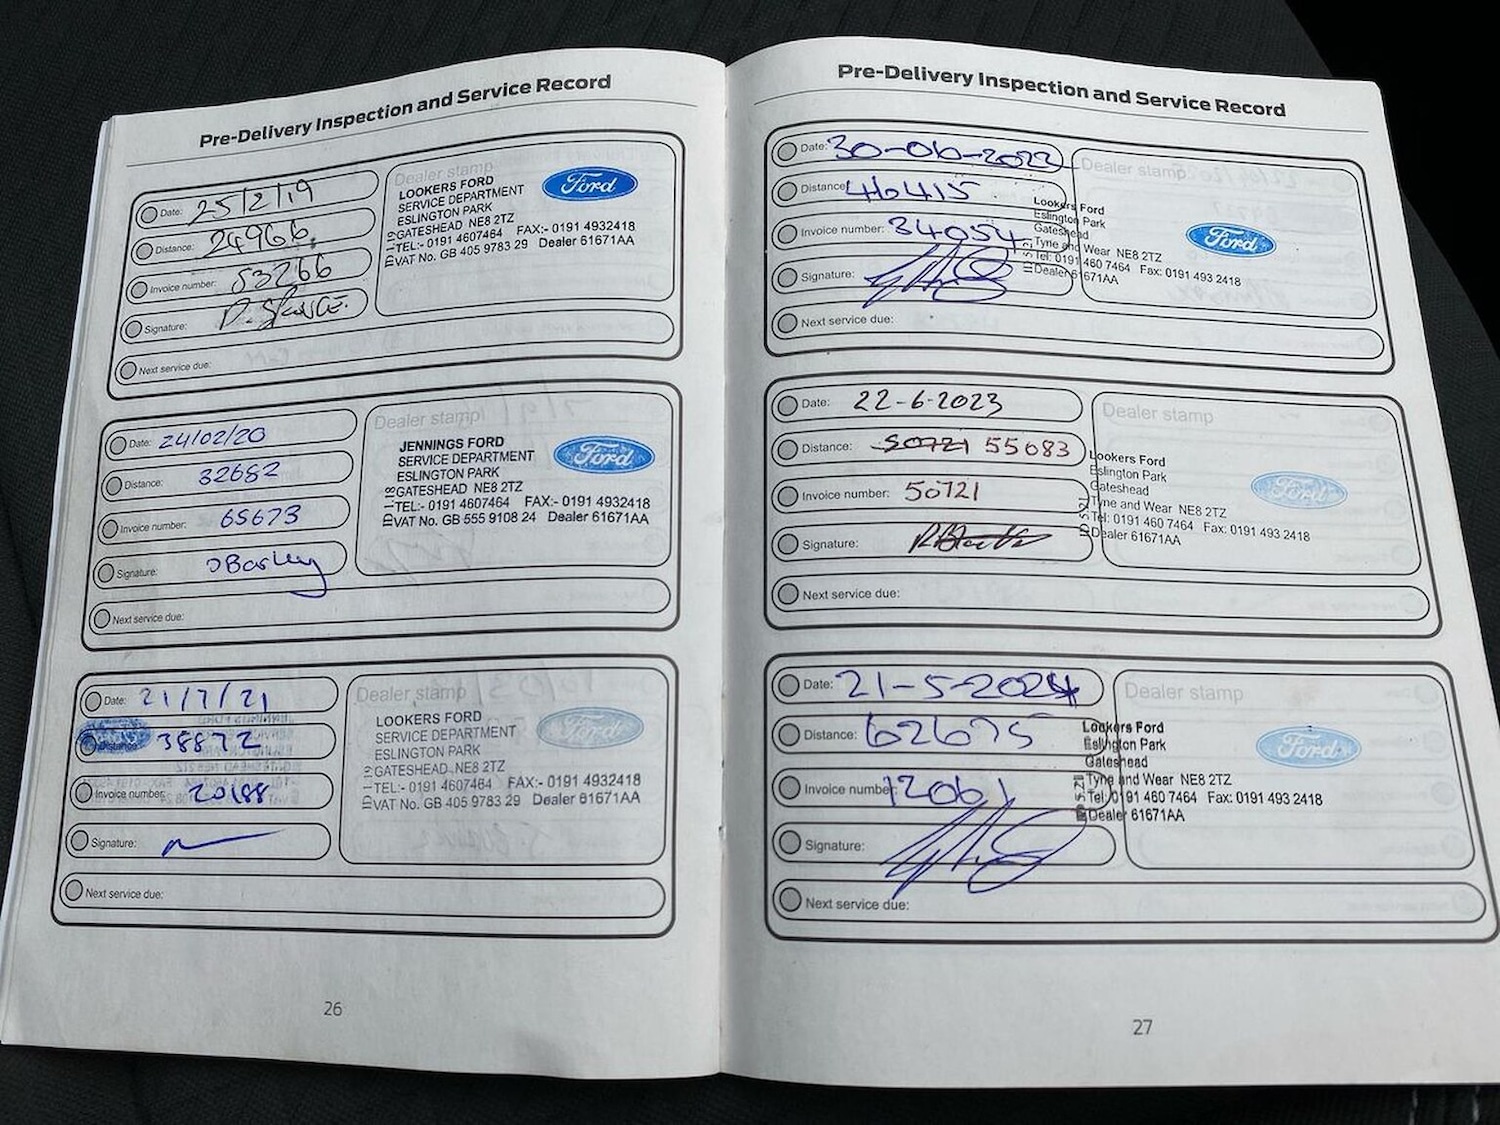 Pre-Delivery Inspection and Service Record
Date: 25/2/19
Distance: 24966.
Invoice number: 53266
Signature:
Next service due:
Dealer stamp
LOOKERS FORD
SERVICE DEPARTMENT
ESLINGTON PARK
GATESHEAD NE8 2TZ
TEL:- 0191 4607464 FAX:- 0191 4932418
VAT No. GB 405 9783 29 Dealer 61671AA
Ford
Date: 24/02/20
Distance: 32682
Invoice number: 65673
Signature:
Next service due:
Dealer stamp
JENNINGS FORD
SERVICE DEPARTMENT
ESLINGTON PARK
GATESHEAD NE8 2TZ
TEL:- 0191 4607464 FAX:- 0191 4932418
VAT No. GB 555 9108 24 Dealer 61671AA
Ford
Date: 21/7/21
Distance: 38872
Invoice number: 20188
Signature:
Next service due:
Dealer stamp
LOOKERS FORD
SERVICE DEPARTMENT
ESLINGTON PARK
GATESHEAD NE8 2TZ
TEL:- 0191 4607464 FAX:- 0191 4932418
VAT No. GB 405 9783 29 Dealer 61671AA
Ford
26
Pre-Delivery Inspection and Service Record
Date: 30-06-2022
Distance: 46415
Invoice number: 34054
Signature:
Next service due:
Dealer stamp
Lookers Ford
Eslington Park
Gateshead
Tyne and Wear NE8 2TZ
Tel: 0191 460 7464 Fax: 0191 493 2418
Dealer 61671AA
Ford
Date: 22-6-2023
Distance: 50721 55083
Invoice number: 50721
Signature:
Next service due:
Dealer stamp
Lookers Ford
Eslington Park
Gateshead
Tyne and Wear NE8 2TZ
Tel: 0191 460 7464 Fax: 0191 493 2418
Dealer 61671AA
Ford
Date: 21-5-2024
Distance: 62675
Invoice number: 12061
Signature:
Next service due:
Dealer stamp
Lookers Ford
Eslington Park
Gateshead
Tyne and Wear NE8 2TZ
Tel: 0191 460 7464 Fax: 0191 493 2418
Dealer 61671AA
Ford
27